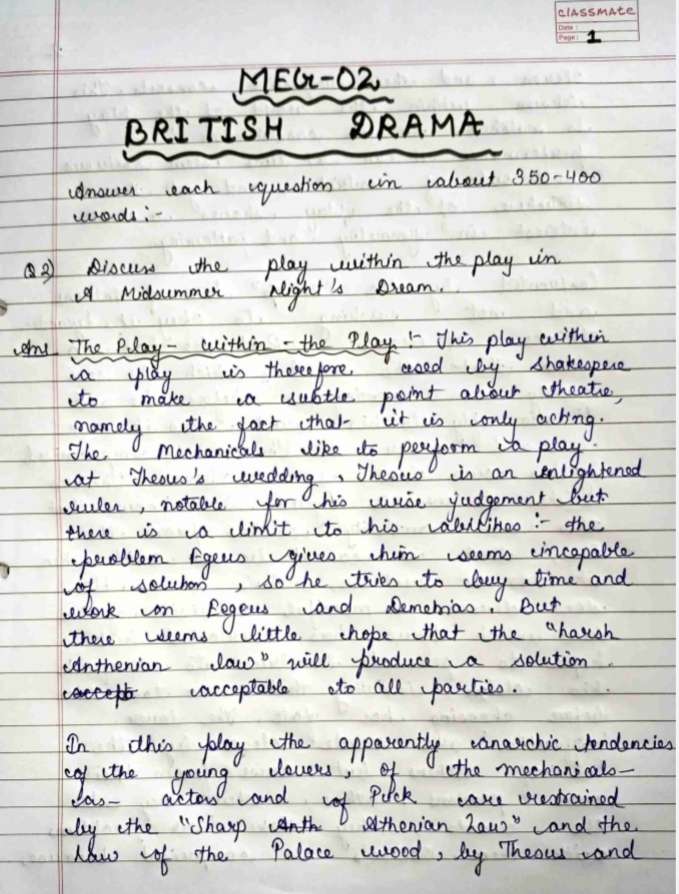 classmate
Date :
Page : 1
MEG-02
BRITISH DRAMA
Answer each question in about 350-400
words :-
Q 2) Discuss the play within the play in
A Midsummer Night's Dream.
Ans The Play - within - the Play :- This play within
a play is therefore used by Shakespere
to make a subtle point about theatre,
namely the fact that it is only acting.
The Mechanicals like to perform a play
at Thesus's wedding, Thesus is an enlightened
ruler, notable for his wise judgement but
there is a limit to his abilities :- the
problem Egeus gives him seems incapable
of solution, so he tries to buy time and
work on Eegeus and Demetrias. But
there seems little hope that the "harsh
Anthenian law" will produce a solution
accept acceptable to all parties.
In this play the apparently anarchic tendencies
of the young lovers, of the mechanicals-
as- actors and of Puck are restrained
by the "Sharp Anth Athenian Law" and the
Law of the Palace wood, by Thesus and